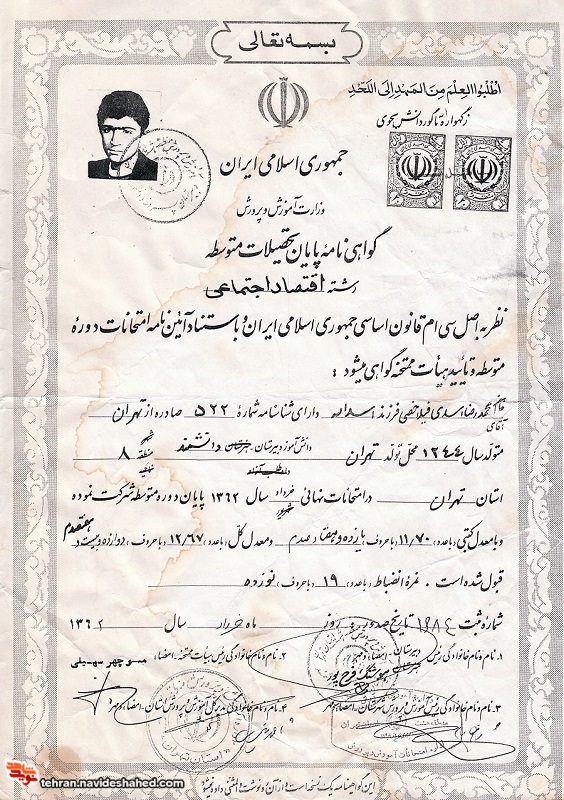 بسمه تعالی
اطلبوا العلم من المهد الی اللحد
ز گهواره تا گور دانش بجوی
جمهوری اسلامی ایران
وزارت آموزش و پرورش
گواهی نامهٔ پایان تحصیلات متوسطه
رشته اقتصاد اجتماعی
نظر به اصل سی ام قانون اساسی جمهوری اسلامی ایران و با استناد آئین نامه امتحانات دورهٔ
متوسطه و تأیید هیأت ممتحنه گواهی میشود :
خانم آقای محمدرضا اسدی فرزند اسداله دارای شناسنامه شمارهٔ ۵۲۲ صادره از تهران
متولد سال ۱۳۴۴ محل تولد تهران دانش آموز دبیرستان دانشمند منطقه ۸
داوطلب آزاد
استان تهران در امتحانات نهائی خرداد شهریور سال ۱۳۶۲ پایان دوره متوسطه شرکت نموده
و با معدل کتبی (با عدد) ۱۱/۷۰ (با حروف) یازده و هفتاد صدم و معدل کل (با عدد) ۱۲/۶۷ (با حروف) دوازده و شصت و هفتصدم
قبول شده است . نمرهٔ انضباط (با عدد) ۱۹ (با حروف) نوزده
شمارهٔ ثبت تاریخ صدور روز ماه خرداد سال ۱۳۶۲
۱- نام و نام خانوادگی رئیس دبیرستان امضاء و مهر
۲- نام و نام خانوادگی رئیس هیأت ممتحنه . امضاء منوچهر سهیلی
هوشنگ فرخ پور
۳- نام و نام خانوادگی رئیس آموزش و پرورش شهرستان - امضاء و مهر
۴- نام و نام خانوادگی مدیر کل آموزش و پرورش استان - امضاء و مهر
این گواهینامه یک نسخه است و از آن رونوشت یا المثنی داده نمیشود
tehran.navideshahed.com